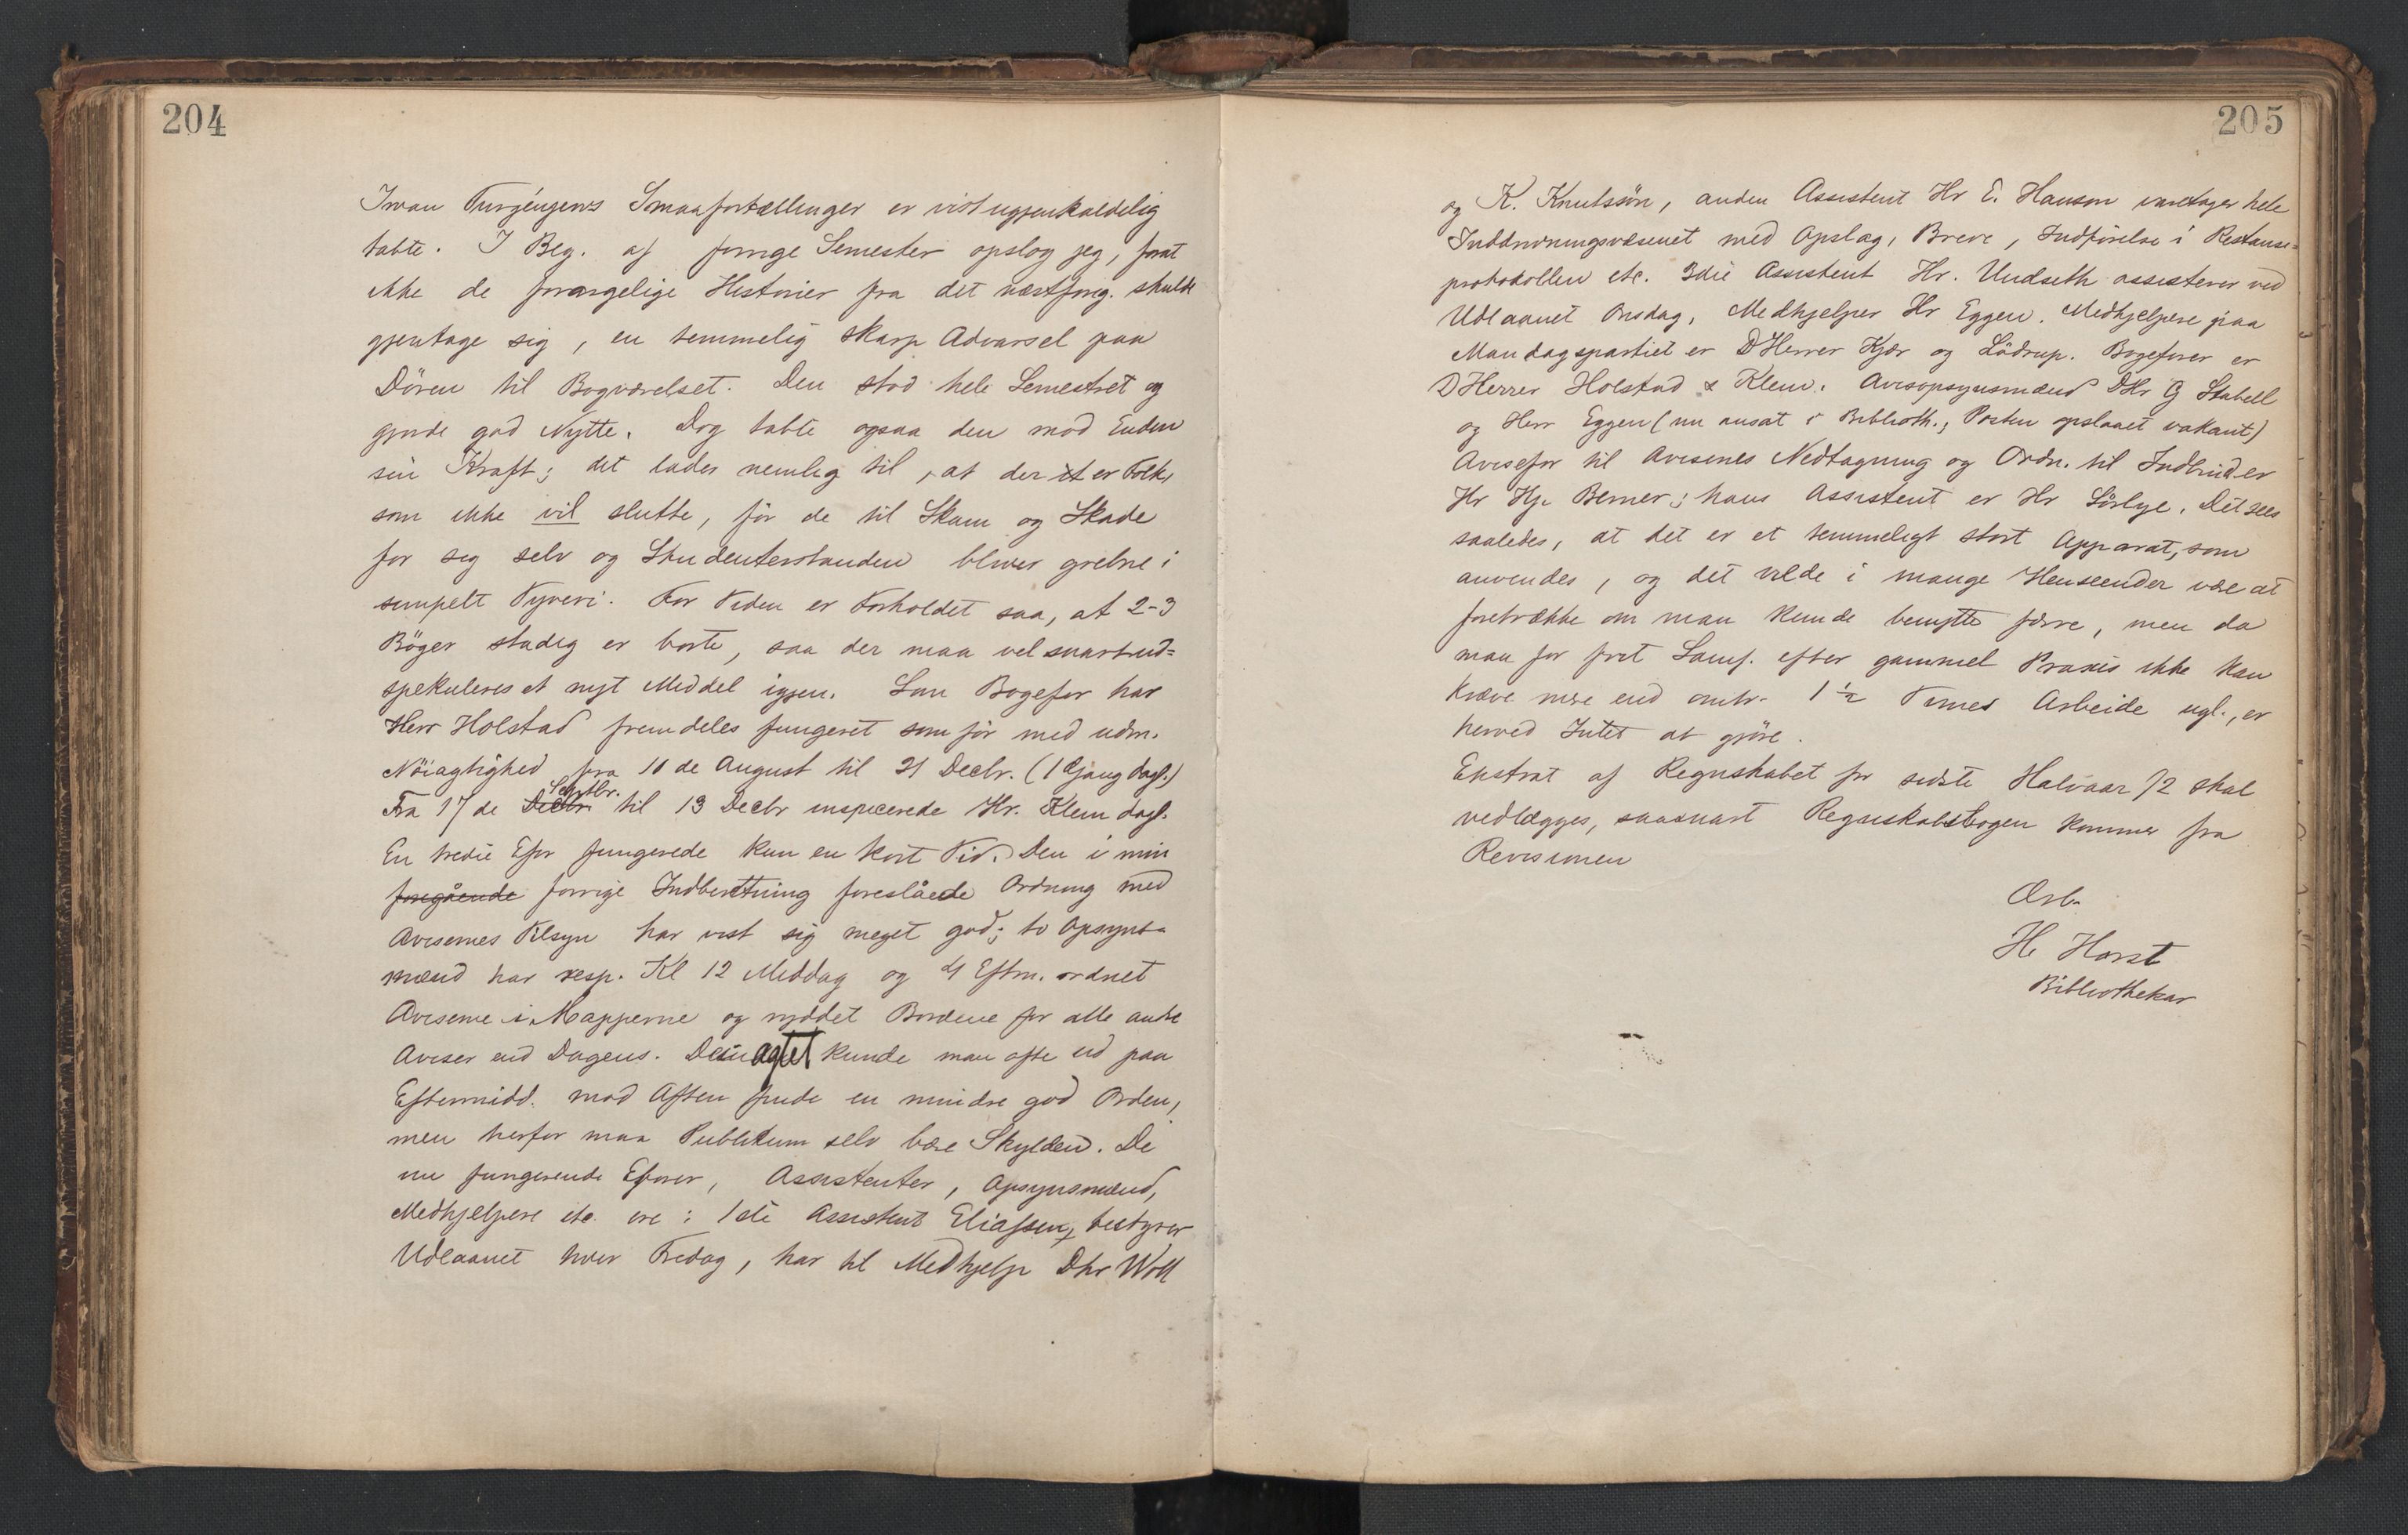 204
Iwan Turgéngews Smaafortællinger er vist ugjenkaldelig
tabte. I Beg. af forrige Semester opslog jeg, forat
ikke de forargelige Historier fra det næstforrig. skulde
gjentage sig, en temmelig skarp Advarsel paa
Døren til Bogværelset. Den stod hele Semestret og
gjorde god Nytte. Dog tabte ogsaa den mod Enden
sin Kraft; det lader nemlig til, at der er Folk,
som ikke vil slutte, før de til Skam og Skade
for sig selv og Studenterstanden bliver grebne i
simpelt Tyveri. For Tiden er Forholdet saa, at 2-3
Bøger stadig er borte, saa der maa vel snart ud=
spekuleres et nyt Middel igjen. Som Bogefor har
Herr Holstad fremdeles fungeret som før med udm.
Nøiagtighed fra 10 de August til 21 Decbr. (1 Gang dagl.)
Fra 17 de Decbr. Septbr. til 13 Decbr inspicerede Hr. Klem dagl.
En tredie Efor fungerede kun en kort Tid. Den i min
foregående forrige Indberetning foreslåede Ordning med
Avisernes Tilsyn har vist sig meget god; to Opsyns-
mænd har resp. Kl 12 Middag og 4 Eftm. ordnet
Aviserne i Mapperne og ryddet Bordene for alle andre
Aviser end Dagens. Desuagtet kunde man ofte ud paa
Eftermidd. mod Aften finde en mindre god Orden,
men herfor maa Publikum selv bære Skylden. De
nu fungerende Eforer, Assistenter, Opsynsmænd,
Medhjelpere etc. ere: 1ste Assistent Eliassen, bestyrer
Udlaanet hver Fredag, har til Medhjelp Dhr Woll
205
og K. Knutssön, anden Assistent Hr E. Hanson varetager hele
Inddrivningsvæsenet med Opslag, Breve, Indførelse i Restanse=
protokollen etc. 3die Assistent Hr. Undseth assisterer ved
Udlaanet Onsdag, Medhjelper Hr Eggen. Medhjelpere paa
Mandagspartiet er DHerrer Kjær og Lödrup. Bogeforer er
DHerrer Holstad & Klem. Avisopsynsmænd DHr G Stabell
og Herr Eggen (nu ansat i Biblioth., Posten opslaaet vakant)
Avisefor til Avisenes Nedtagning og Ordn. til Indbind. er
Hr Hj. Berner; hans Assistent er Hr Sörlye. Det sees
saaledes, at det er et temmeligt stort Apparat, som
anvendes, og det vilde i mange Henseender være at
foretrække om man kunde benytte færre, men da
man for frit Samf. efter gammel Praxis ikke kan
kræve mere end omtr. 1 ½ Times Arbeide ugl., er
herved Intet at gjöre.
Ekstrat af Regnskabet for sidste Halvaar 72 skal
vedlægges, saasnart Regnskabsbogen kommer fra
Revisionen
Ærb.
H. Horst
Bibliothekar